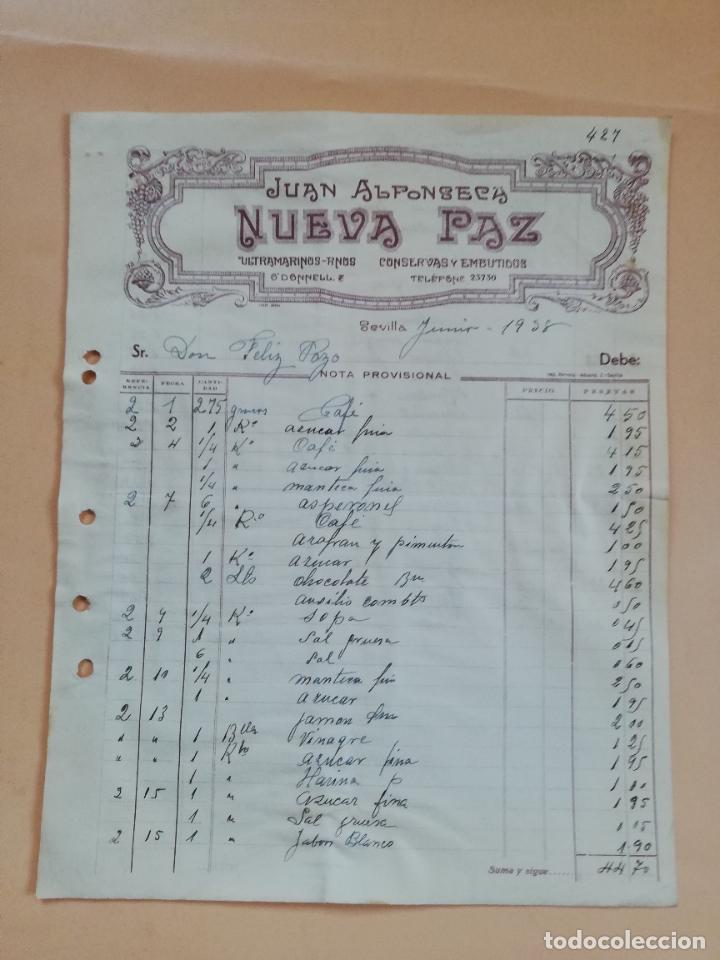 427
JUAN ALFONSECA
NUEVA PAZ
ULTRAMARINOS-FINOS CONSERVAS Y EMBUTIDOS
O'DONNELL, 2 TELÉFONO 23730
Sevilla Junio - 1938
Sr. Don Feliz Pozo Debe:
NOTA PROVISIONAL
REFERENCIA FECHA CANTIDAD PRECIO PESETAS
2 1 275 gramos Café 4 50
2 2 1 Ko azucar fina 1 95
2 4 1/4 Ko Café 4 15
1 " azucar fina 1 95
1/4 " manteca fina 2 50
2 7 6 " asperones 1 50
1/4 Ko Café 4 25
azafran y pimenton 1 00
1 Ko azucar 1 95
2 Lbs chocolate 4 60
auxilio combts 50
2 9 1/4 Ko sopa 0 45
2 9 1 " Sal gruesa 0 15
6 " Sal 0 60
2 10 1/4 " manteca fin 2 50
1 " azucar 1 95
2 13 jamon 2 00
" " 1 Blla Vinagre 1 25
" " 1 Ko azucar fina 1 95
1 " Harina p 1 00
2 15 1 " azucar fina 1 95
1 " Sal gruesa 1 15
2 15 1 " Jabon Blanco 1 90
Suma y sigue..... 44 70
todocoleccion
todocoleccion.net